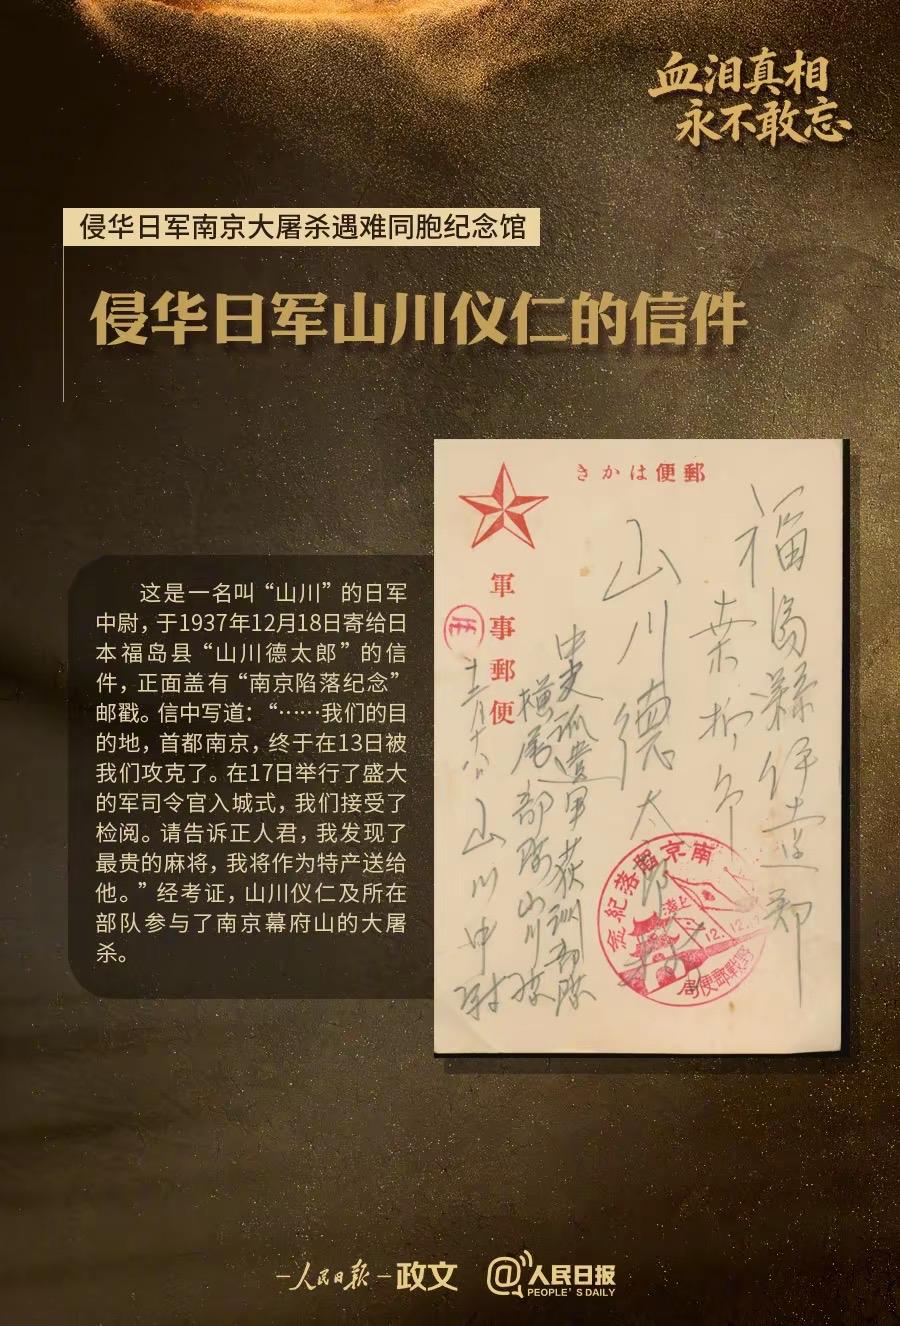 血泪真相
永不敢忘
侵华日军南京大屠杀遇难同胞纪念馆
侵华日军山川仪仁的信件
这是一名叫“山川”的日军
中尉，于1937年12月18日寄给日
本福岛县“山川德太郎”的信
件，正面盖有“南京陷落纪念”
邮戳。信中写道：“……我们的目
的地，首都南京，终于在13日被
我们攻克了。在17日举行了盛大
的军司令官入城式，我们接受了
检阅。请告诉正人君，我发现了
最贵的麻将，我将作为特产送给
他。”经考证，山川仪仁及所在
部队参与了南京幕府山的大屠
杀。
きかは便郵
福島縣伊達郡
山川德太郎
中支派遣軍荻洲部隊
軍事郵便
十二月十八日
山川中尉
南京陷落紀念
12.12.1
野戰郵便局
人民日报 政文
@人民日报
PEOPLE'S DAILY